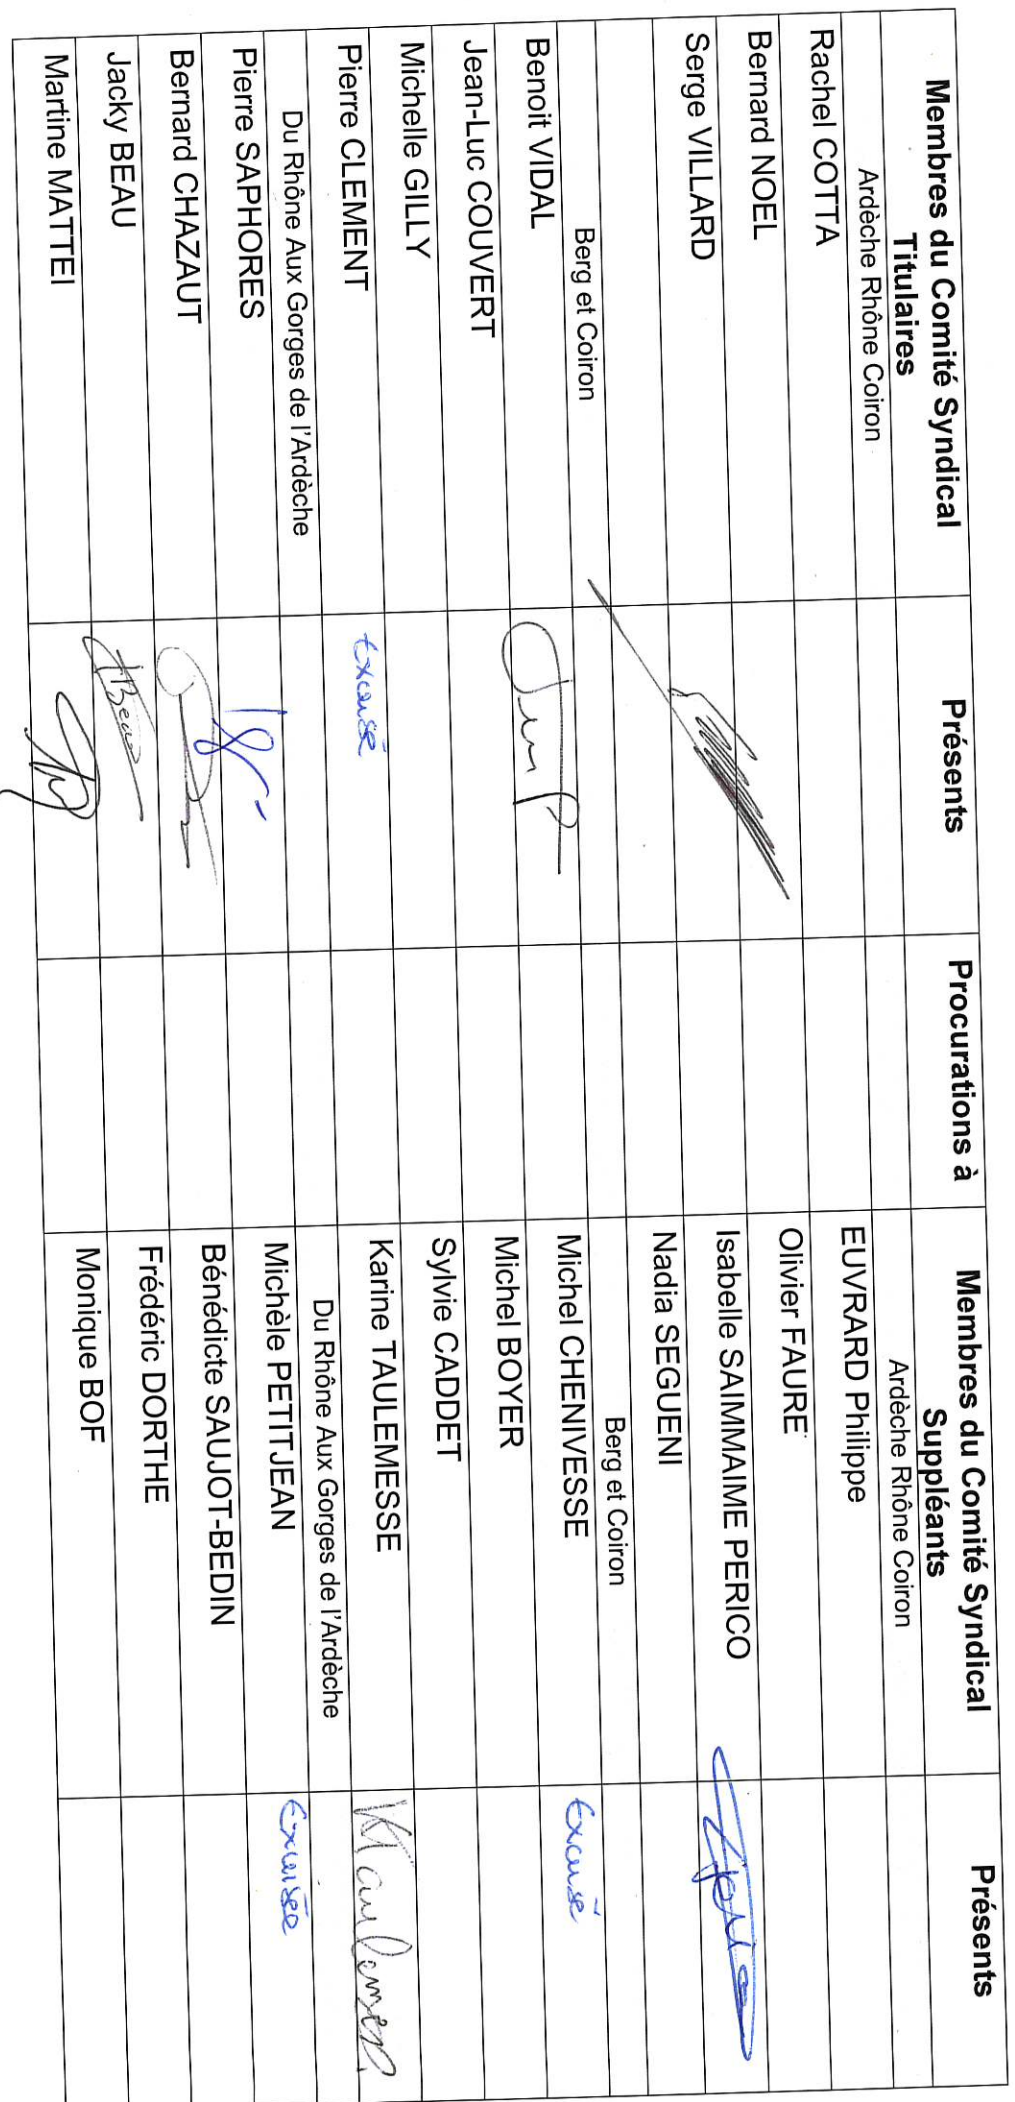 Membres du Comité Syndical Titulaires | Présents | Procurations à | Membres du Comité Syndical Suppléants | Présents
Ardèche Rhône Coiron | | | Ardèche Rhône Coiron |
Rachel COTTA | | | EUVRARD Philippe |
Bernard NOEL | | | Olivier FAURE |
Serge VILLARD | | | Isabelle SAIMMAIME PERICO |
| | | Nadia SEGUENI |
Berg et Coiron | | | Berg et Coiron |
Benoit VIDAL | | | Michel CHENIVESSE | Excusé
Jean-Luc COUVERT | | | Michel BOYER |
Michelle GILLY | | | Sylvie CADDET |
Pierre CLEMENT | Excusé | | Karine TAULEMESSE | KTaulemesse
Du Rhône Aux Gorges de l'Ardèche | | | Du Rhône Aux Gorges de l'Ardèche |
Pierre SAPHORES | | | Michèle PETITJEAN | Excusée
Bernard CHAZAUT | | | Bénédicte SAUJOT-BEDIN |
Jacky BEAU | JBeau | | Frédéric DORTHE |
Martine MATTEI | | | Monique BOF |